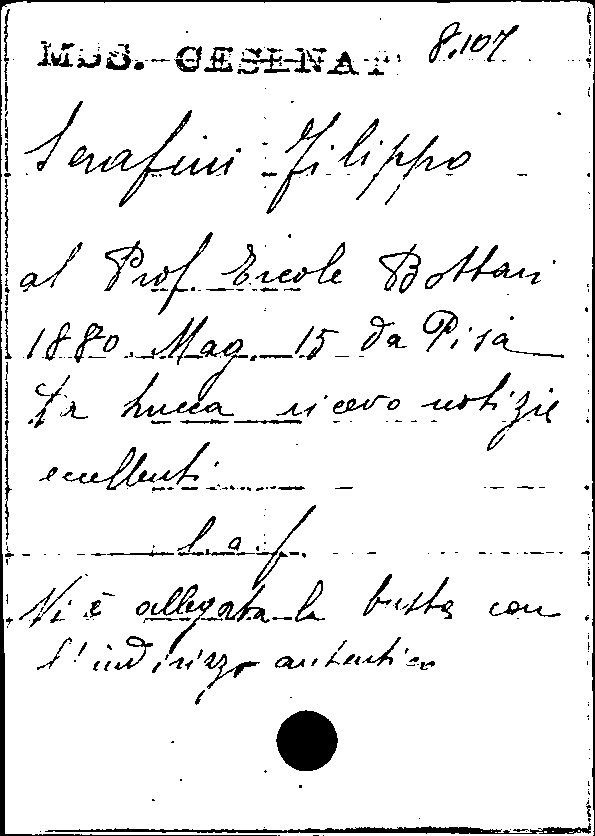 MSS. CESENAT 8.107
Serafini Filippo
al Prof. Ercole Bottari
1880 Mag. 15 da Pisa
Da Lucca ricevo notizie
eccellenti
l.a.f.
Vi è allegata la busta con
l'indirizzo autentico